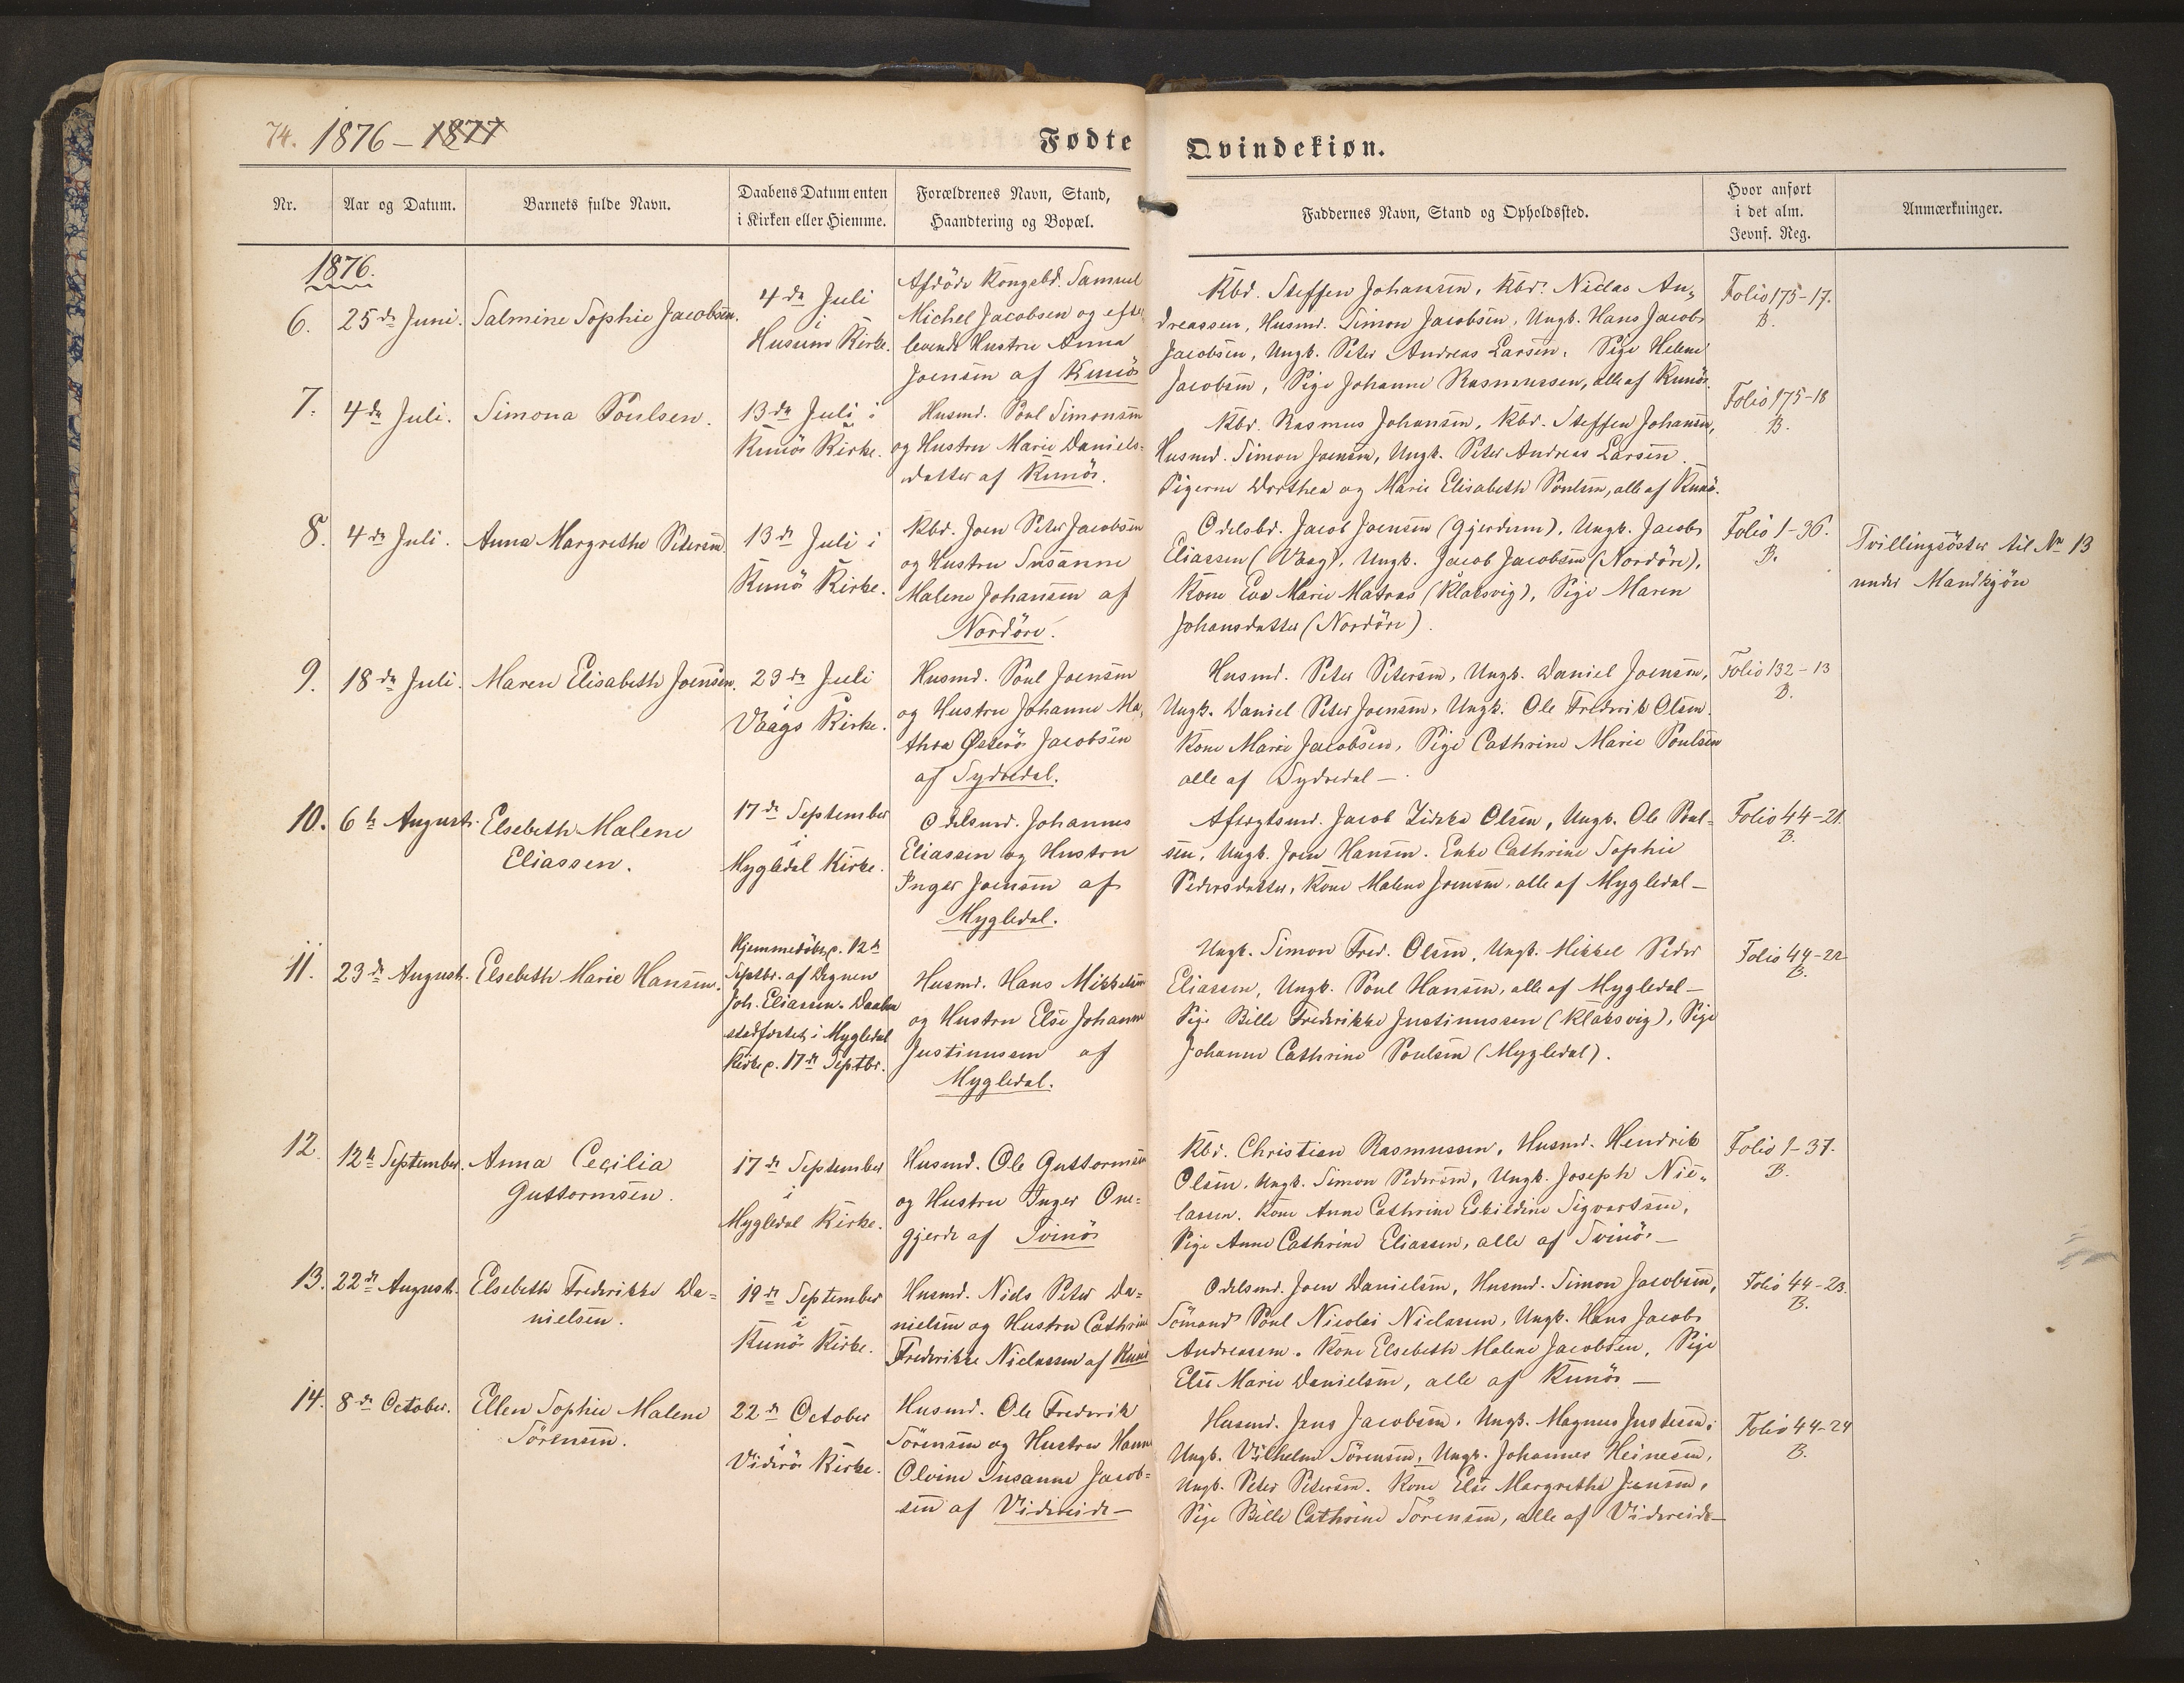 74. 1876 – 1877
Fødte
Qvindekiøn.
Nr.
Aar og Datum.
Barnets fulde Navn.
Daabens Datum enten
i Kirken eller Hiemme.
Forældrenes Navn, Stand,
Haandtering og Bopæl.
Faddernes Navn, Stand og Opholdssted.
Hvor anført
i det alm.
Jevnf. Reg.
Anmærkninger.
1876.
6.
25de Juni.
Salmine Sophie Jacobsen.
4de Juli
i
Husum Kirke.
Afdöde Kongsbd. Samuel
Michel Jacobsen og efter
levende Hustru Anna
Joensen af Kunö
Kbd. Steffen Johansen, Kbd. Niclas An„
dreassen, Husmd. Simon Jacobsen, Ungk. Hans Jacob
Jacobsen, Ungk. Peter Andreas Larsen. Pige Helene
Jacobsen, Pige Johanne Rasmussen, alle af Kunö.
Folio 175-17.
B.
7.
4de Juli.
Simona Poulsen.
13de Juli i
Kunö Kirke.
Husmd. Poul Simonsen
og Hustru Marie Daniels-
datter af Kunö.
Kbd. Rasmus Johansen, Kbd. Steffen Johansen,
Husmd. Simon Joensen, Ungk. Peter Andreas Larsen.
Pigerne Dorthea og Marie Elisabeth Poulsen, alle af Kunö.
Folio 175-18
B.
8.
4de Juli.
Anna Margrethe Petersen
13de Juli i
Kunö Kirke.
Kbd. Joen Peter Jacobsen
og Hustru Susanne
Malene Johansen af
Nordöre.
Odelsbd. Jacob Joensen (Gjerdum), Ungk. Jacob
Eliassen (Vaag), Ungk. Jacob Jacobsen (Nordöre),
Kone Eva Marie Matras (Klaksvig), Pige Maren
Johansdatter (Nordöre).
Folio 1-36.
B.
Tvillingsöster til No 13
under Mandkjön
9.
18de Juli.
Maren Elisabeth Joensen.
23de Juli
i
Vaags Kirke.
Husmd. Poul Joensen
og Hustru Johanne Ma,
thea Österö Jacobsen
af Sydredal.
Husmd. Peter Petersen, Ungk. Daniel Joensen,
Ungk. Daniel Peter Joensen, Ungk. Ole Frederik Olsen.
Kone Marie Jacobsen, Pige Cathrine Marie Poulsen
alle af Sydredal –.
Folio 132-13
B.
10.
6te August.
Elsebeth Malene
Eliassen.
17de September
i
Mygledal Kirke.
Odelsmd. Johannes
Eliassen og Hustru
Inger Joensen af
Mygledal.
Aftægtsmd. Jacob Olsen, Ungk. Ole Poul-
sen, Ungk. Joen Hansen. Enke Cathrine Sophie
Pedersdatter, Kone Malene Joensen, alle af Mygledal –
Folio 44-21.
B.
11.
23de August.
Elsebeth Marie Hansen.
Hjemmedöbt, d. 12te
Septbr. af Degnen
Joh. Eliassen. Daaben
stadfæstet i Mygledal
Kirke d. 17de Septbr.
Husmd. Hans Mikkelsen
og Hustru Else Johanne
Justinussen af
Mygledal.
Ungk. Simon Fred. Olsen, Ungk. Mikkel Peder
Eliassen, Ungk. Poul Hansen, alle af Mygledal –
Pige Bille Frederikke Justinussen (Klaksvig), Pige
Johanne Cathrine Poulsen (Mygledal).
Folio 44-22
B.
12.
12te September.
Anna Cecilia
Guttormsen.
17de September
i
Mygledal Kirke.
Husmd. Ole Guttormsen
og Hustru Inger One-
gjerde af Svinö
Kbd. Christian Rasmussen, Husmd. Hendrik
Olsen. Ungk. Simon Pedersen, Ungk. Joseph Nic„
lassen. Kone Anne Cathrine Eskildine Sigvartsen,
Pige Anne Cathrine Eliassen, alle af Svinö. –
Folio 1-37.
B.
13.
22de August.
Elsebeth Frederikke Da-
nielsen.
19de September
i
Kunö Kirke.
Husmd. Niels Peter Da-
nielsen og Hustru Cathrine
Frederikke Niclassen af Kunö
Odelsmd. Joen Danielsen, Husmd. Simon Jacobsen,
Sömand Poul Nicolai Niclassen, Ungk. Hans Jacob
Andreassen. Kone Elsebeth Malene Jacobsen, Pige
Else Marie Danielsen, alle af Kunö –
Folio 44-23.
B.
14.
8de October.
Ellen Sophie Malene
Sörensen.
22de October
i
Viderö Kirke.
Husmd. Ole Frederik
Sörensen og Hustru Hanne
Olvine Susanne Jacob-
sen af Videreide –
Husmd. Jens Jacobsen. Ungk. Magnus Justesen,
Ungk. Vilhelm Sörensen, Ungk. Johannes Heinesen,
Ungk. Peter Petersen. Kone Else Margrethe Jensen,
Pige Bille Cathrine Sörensen, alle af Videreide –
Folio 44-24
B.